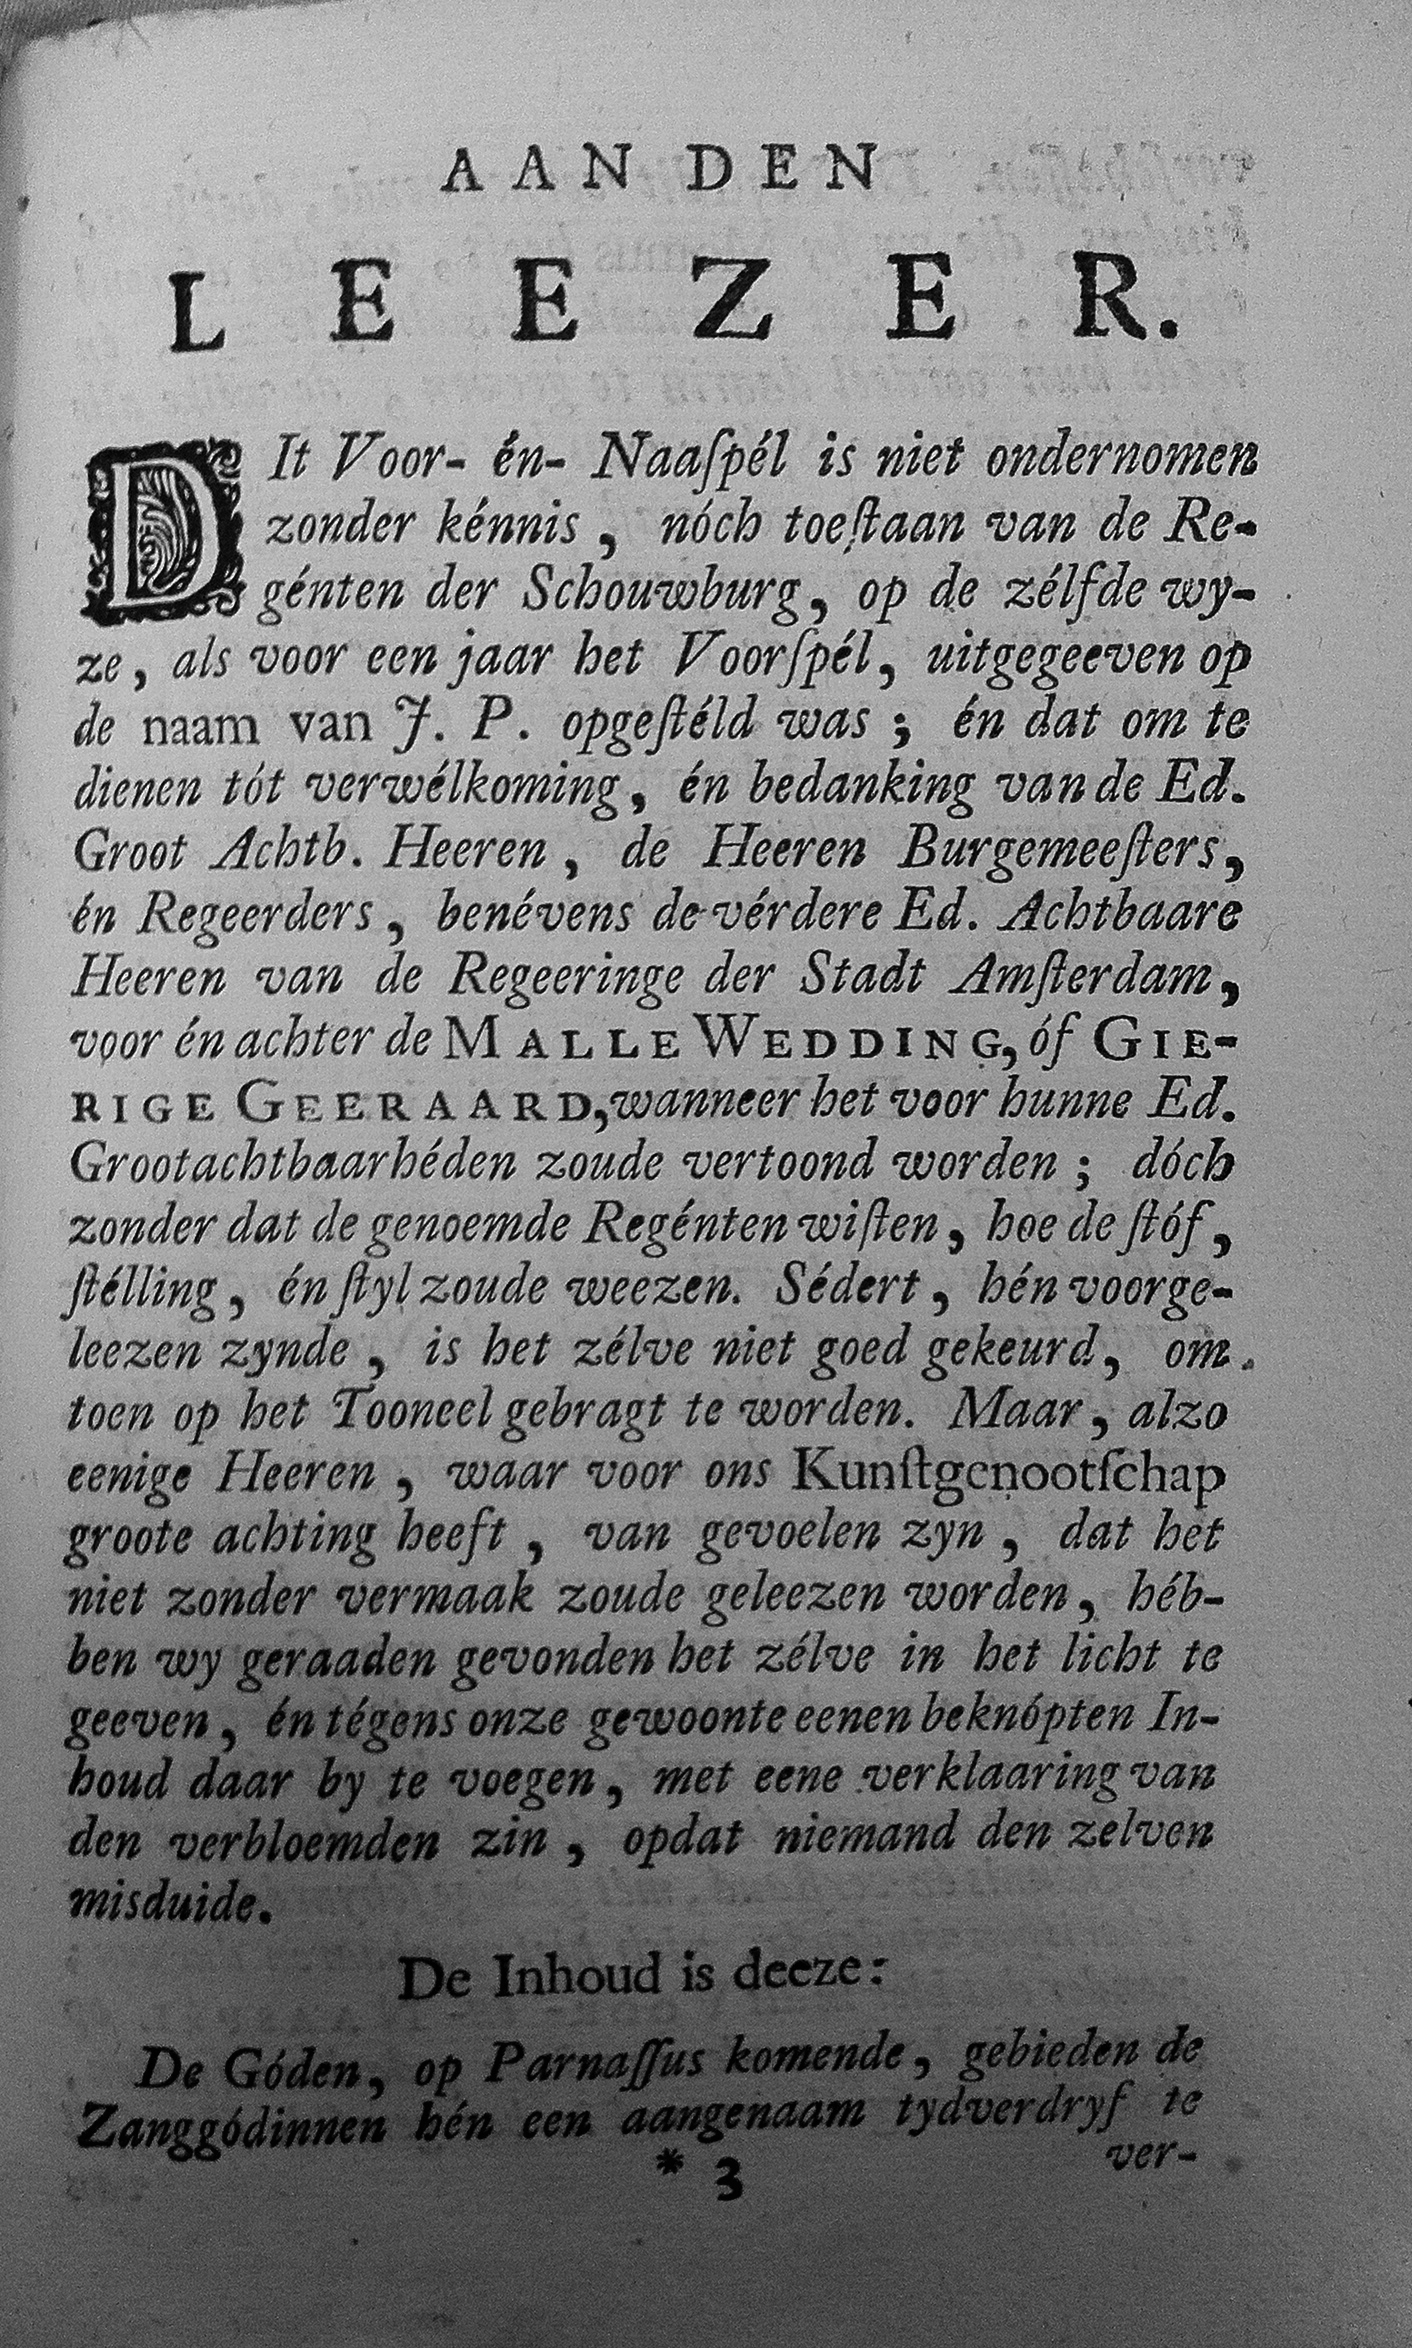 AAN DEN
LEEZER.
DIt Voor- én- Naaſpél is niet ondernomen
zonder kénnis, nóch toeſtaan van de Re-
génten der Schouwburg, op de zélfde wy-
ze, als voor een jaar het Voorſpél, uitgegeeven op
de naam van J. P. opgeſtéld was; én dat om te
dienen tót verwélkoming, én bedanking van de Ed.
Groot Achtb. Heeren, de Heeren Burgemeeſters,
én Regeerders, benévens de vérdere Ed. Achtbaare
Heeren van de Regeeringe der Stadt Amſterdam,
voor én achter de MALLE WEDDING, óf GIE-
RIGE GEERAARD, wanneer het voor hunne Ed.
Grootachtbaarhéden zoude vertoond worden; dóch
zonder dat de genoemde Regénten wiſten, hoe de ſtóf,
ſtélling, én ſtyl zoude weezen. Sédert, hén voorge-
leezen zynde, is het zélve niet goed gekeurd, om
toen op het Tooneel gebragt te worden. Maar, alzo
eenige Heeren, waar voor ons Kunſtgenootſchap
groote achting heeft, van gevoelen zyn, dat het
niet zonder vermaak zoude geleezen worden, héb-
ben wy geraaden gevonden het zélve in het licht te
geeven, én tégens onze gewoonte eenen beknópten In-
houd daar by te voegen, met eene verklaaring van
den verbloemden zin, opdat niemand den zelven
misduide.
De Inhoud is deeze:
De Góden, op Parnaſſus komende, gebieden de
Zanggódinnen hén een aangenaam tydverdryf te
* 3 ver-